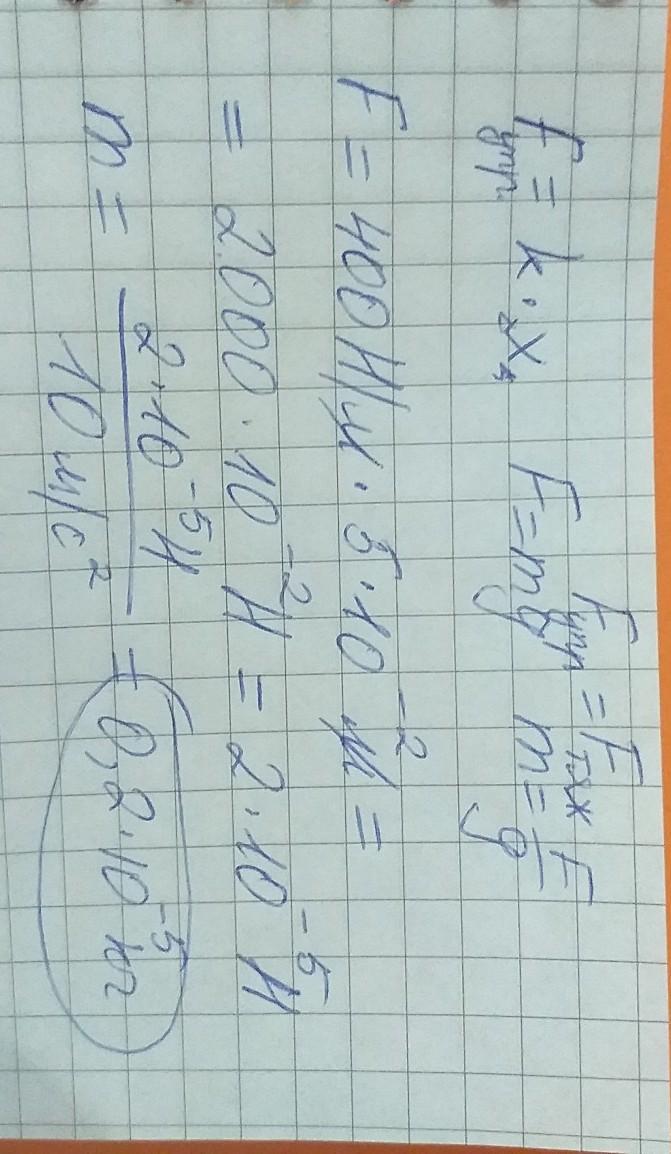 Fупр = Fтяж
Fупр. = k · x, F = mg m = F/g
F = 400 Н/м · 5 · 10⁻² м =
= 2000 · 10⁻² Н = 2 · 10⁻⁵ Н
m = 2 · 10⁻⁵ Н / 10 м/с² = 0,2 · 10⁻⁵ кг